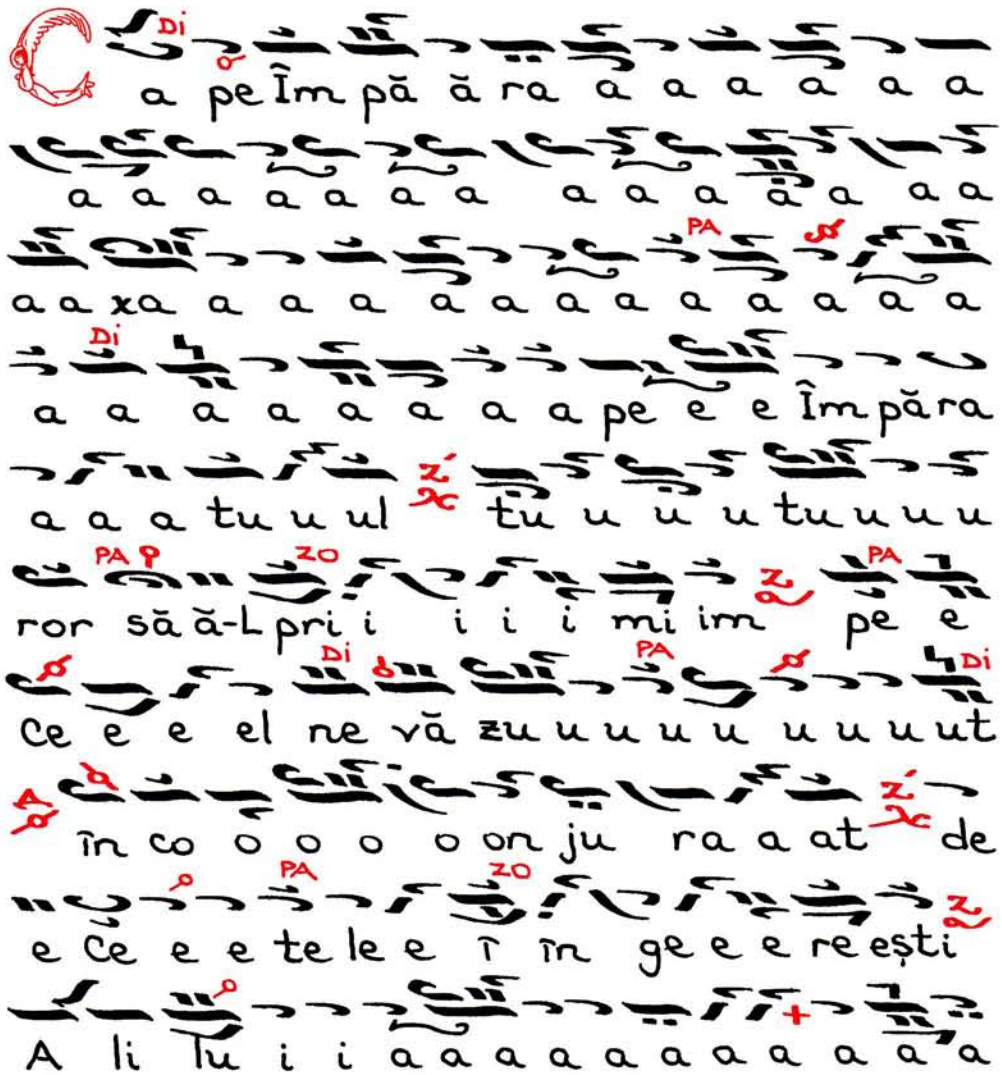 Di
C a pe Îm pă ă ra a a a a a a
a a a a a a a a a a ă a a a
PA
a a xa a a a a a a a a a a a a
Di
a a a a a a a a a pe e e Îm pă ra
a a a tu u ul Z' tu u u u tu u u u
PA ZO Z PA
ror să ă-L pri i i i i mi im pe e
Di PA Di
ce e e el ne vă zu u u u u u u u ut
Δ în co o o o o on ju ra a at Z' de
PA ZO
e Ce e e te le e î în ge e e re ești Z
A li lu i i a a a a a a a a a a